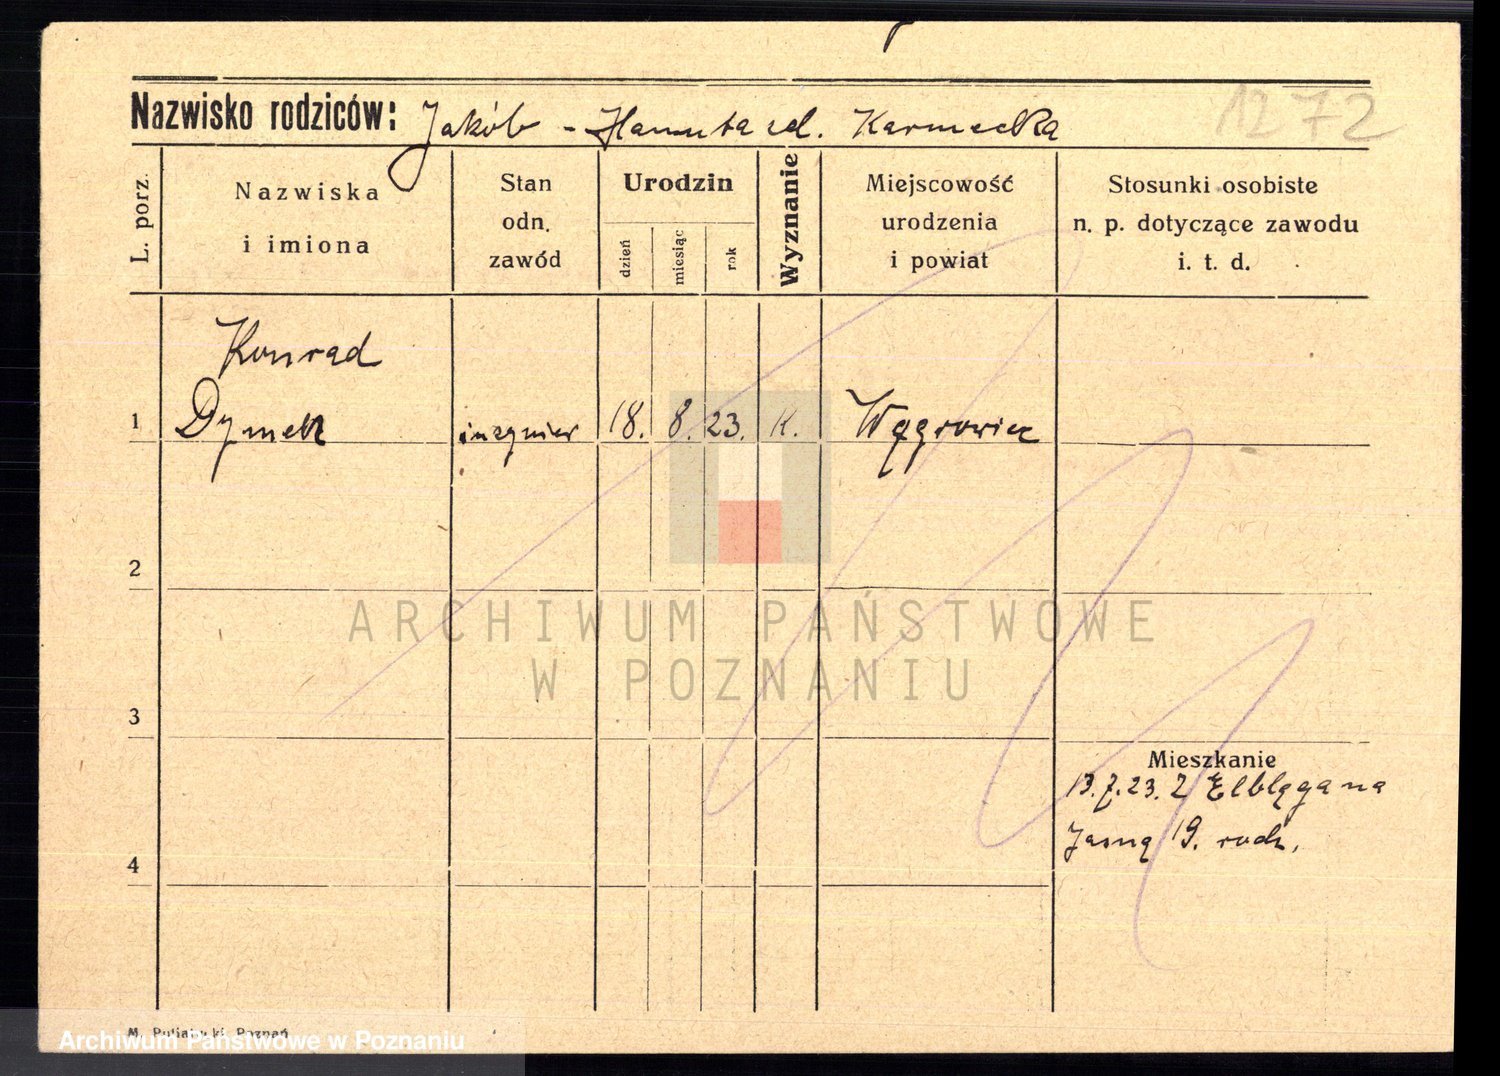 Nazwisko rodziców: Jakób - zd. Karmecka
1272
L. porz.
Nazwiska
i imiona
Stan
odn.
zawód
Urodzin
dzień
miesiąc
rok
Wyznanie
Miejscowość
urodzenia
i powiat
Stosunki osobiste
n. p. dotyczące zawodu
i. t. d.
Konrad
1 Dymek inzynier 18. 8. 23. K. Wągrowiec
2
3
4
Mieszkanie
13.7.23. Z Elbląga na
Jasną 19. rodz.
M. Poznań
ARCHIWUM PAŃSTWOWE
W POZNANIU
Archiwum Państwowe w Poznaniu